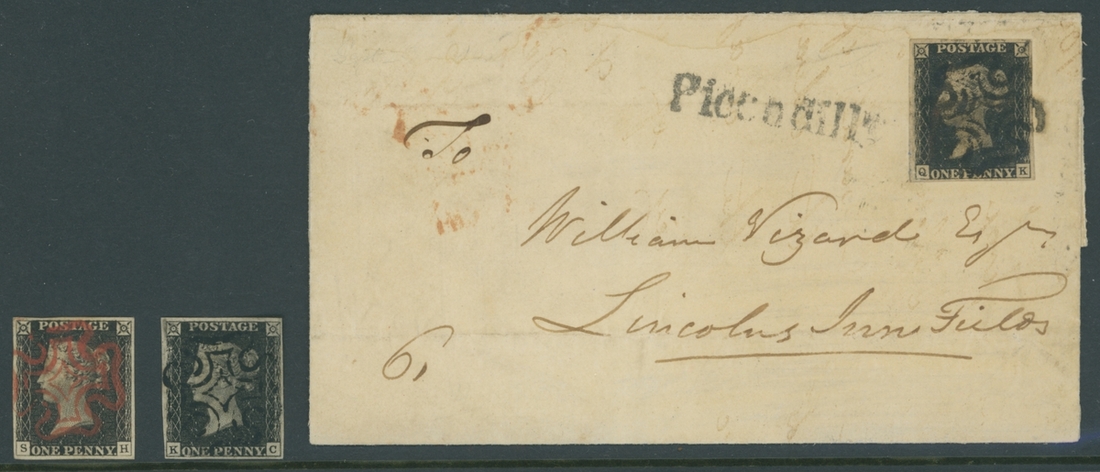 POSTAGE
Piccadilly
To
Q ONE PENNY K
William Vizard Esqr.
Lincolns Inn Fields
6,
POSTAGE
S ONE PENNY H
POSTAGE
K ONE PENNY C